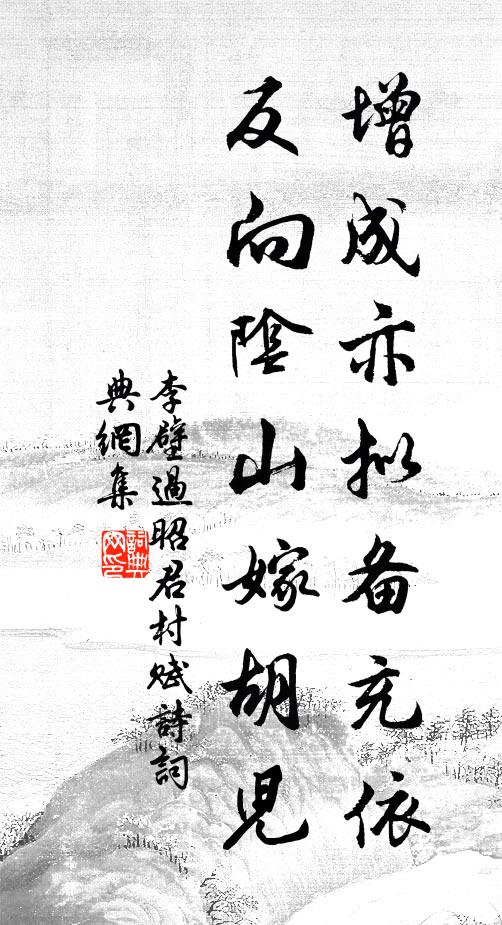 增成亦拟备充依
反向陰山嫁胡児
李壁過昭君村赋詩詞
典網集
詞典
网印